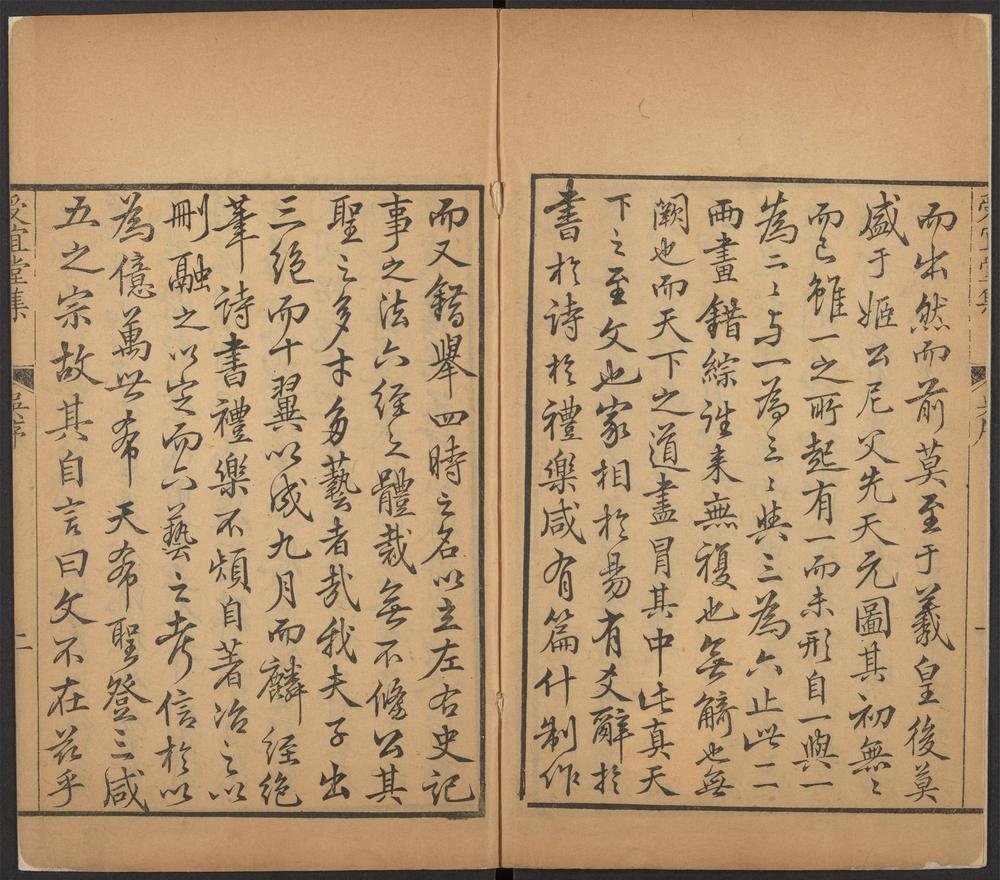 而出然而前莫至于羲皇後莫
盛于姬公尼父先天元圖其初無〻
而已雖一之所起有一而未形自一與一
為二〻与一為三〻與三為六止此二
兩畫錯綜誰来無複也無觭也無
闕也而天下之道盡冒其中此真天
下之至文也家相於易有爻辭於
書於詩於禮樂咸有篇什制作
而又錯舉四時之名以立左右史記
事之法六經之體裁無不俻公其
聖之多才多藝者哉我夫子出
三絶而十翼以成九月而麟經絶
筆詩書禮樂不煩自著冶之以
刪融之以定而六藝之考信於以
為億萬世希天希聖登三咸
五之宗故其自言曰文不在兹乎
受宜堂集
序
二